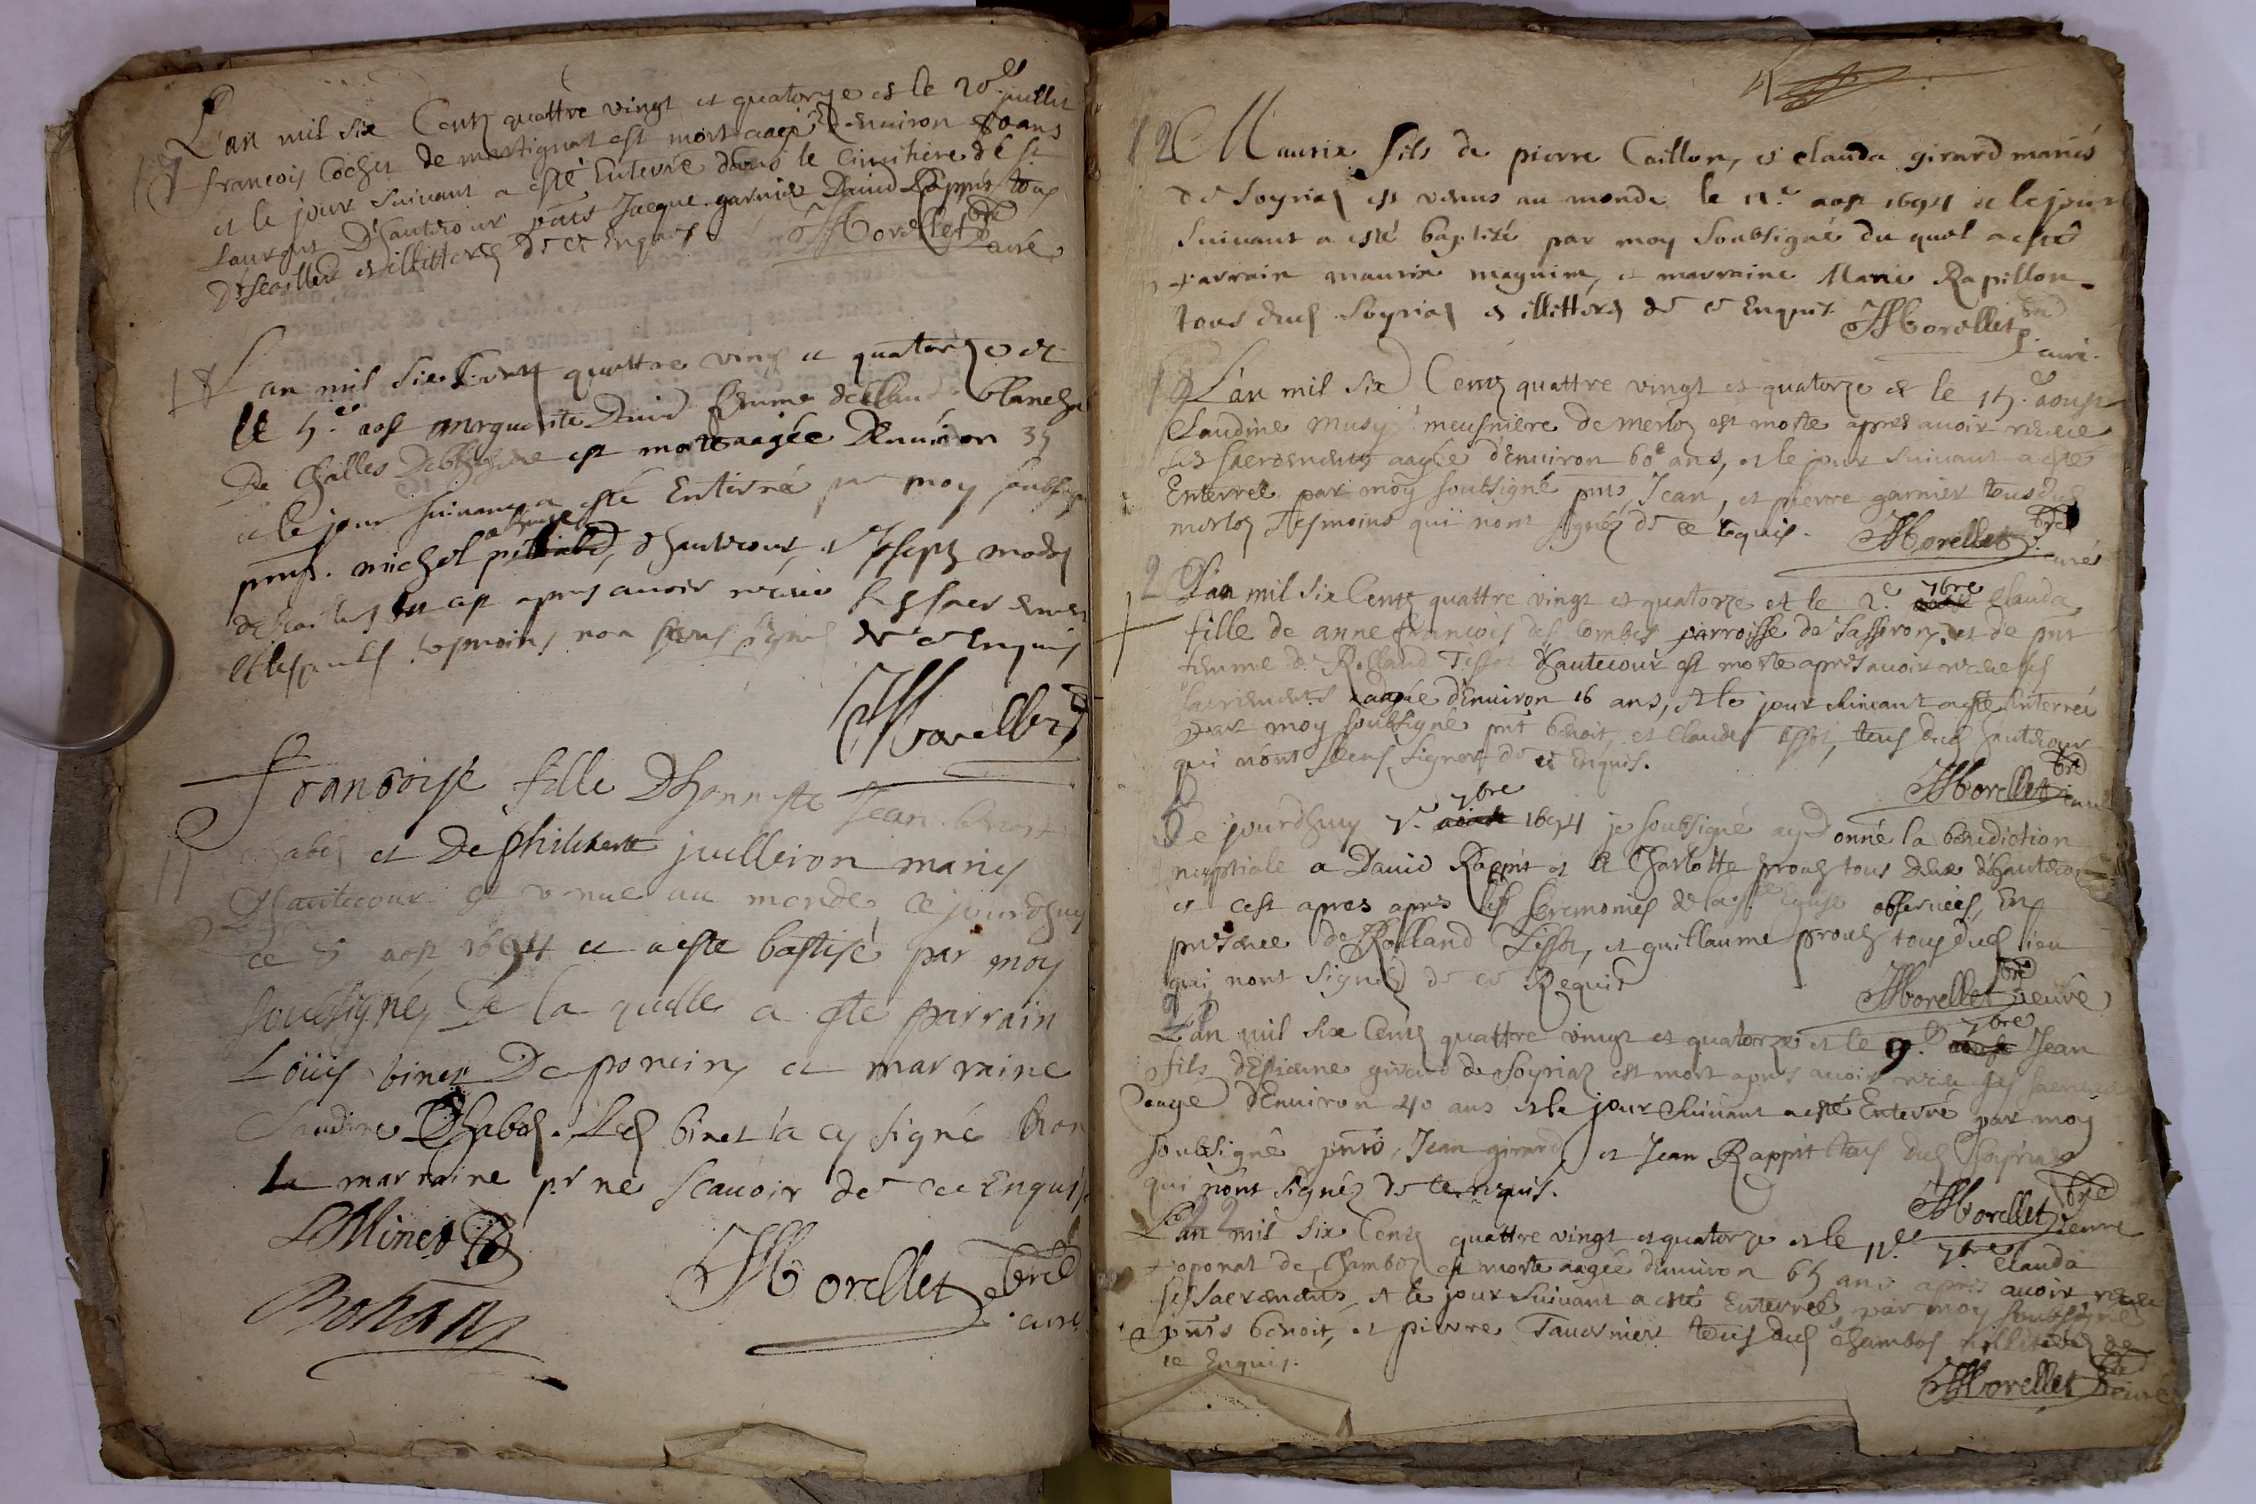 L'an mil six Centz quattre vingt et quatorze et le 20e juillet
17 francois Cochet de martignat est mort aagé d'enuiron 80 ans
et le jour suiuant a esté Enterré dans le Cimitiere de St
Laurent D'hautecour pnts Jacque garnier Dauid Rappit tous
D'Escoilles et illitterez de ce Enquis
JMorellet pbre
curé
18 L'an mil six Centz quattre vingt et quatorze et
le 5e aost marguerite Dauid femme de Claude blanchet
De Challes est morte aagée D'enuiron 35
et le jour suiuant a esté Enterrée par moy soubsigné
pnts. michel d'hautecour, et Joseph
apres auoir receu ses sacremens
tesmoins non sceus signer de ce Enquis
JMorellet
francoise fille D'honneste Jean benoit
19 Chabod et De philiberte juilleron mariés
D'hautecour est venue au monde ce jourdhuy
ce 5 aost 1694 et a esté baptisé par moy
soubsigné De la quelle a esté parrain
Loüis binet De poncin et marraine
Claudine Chabod. Led binet a cy signé non
la marraine pr ne scauoir de ce Enquise
LMinet
Bohan
JMorellet pbre
curé
12 Maurix fils de pierre Caillon, et clauda girard mariés
de Soyriaz est venus au monde le 12e aost 1694 et le jour
suiuant a esté baptisé par moy Soubsigné du quel a esté
parrain maurix magnin, et marraine Marie Rapillon
tous dud. Soyriaz et illitterez de ce Enquis. JMorellet pbre
curé.
19 L'an mil six Centz quattre vingt et quatorze et le 15e aoust
Claudine Musy meusnière de merloz est morte apres auoir receu
ses sacremens aagée d'enuiron 60e ans, et le jour suiuant a esté
Enterreé par moy soubsigné pnts Jean, et pierre garnier tous dud
merloz tesmoins qui nont signéz de ce requis. JMorellet pbre
curé
2 L'an mil six Centz quattre vingt et quatorze et le 2e 7bre Clauda
fille de anne francois des Combes parroisse de Sasseron, et de pnt
femme de Rolland Tissot D'hautecour est morte apres auoir receu ses
sacremens aagée d'Enuiron 16 ans, et le jour suiuant a esté Enterrée
par moy soubsigné pnt benoit, et Claude Tissot, tous dud hautecour
qui n'ont sceus signer de ce Enquis.
JMorellet pbre curé
Ce jourdhuy 7e 7bre 1694 je soubsigné ay donné la benediction
nuptiale a Dauid Rappit et a Charlotte proud tous deux d'hautecour
et cest apres apres les Ceremonies de la ste Eglise obseruées, En
presence de Rolland Tissot, et guillaume proud tous dud lieu
qui nont signéz de ce Requis
JMorellet pbre curé
21 L'an mil six Centz quattre vingt et quatorze et le 9e 7bre Jean
fils d'Estienne girard de Soyriaz est mort apres auoir receu ses sacremens
aagé d'Enuiron 40 ans et le jour suiuant a esté Enterré par moy
soubsigné pnts, Jean girard, et Jean Rappit tous dud Soyriaz
qui n'ont signéz de ce requis.
JMorellet pbre curé
22 L'an mil six Centz quattre vingt et quatorze et le 11e 7bre Clauda
poponat de Chamboz est morte aagée denuiron 65 ans apres auoir receu
ses sacremens, et le jour suiuant a esté Enterreé par moy soubsigné
pnts benoit, et pierre Tauernier tous dud Chamboz illiterez de
ce Enquis.
JMorellet pbre curé